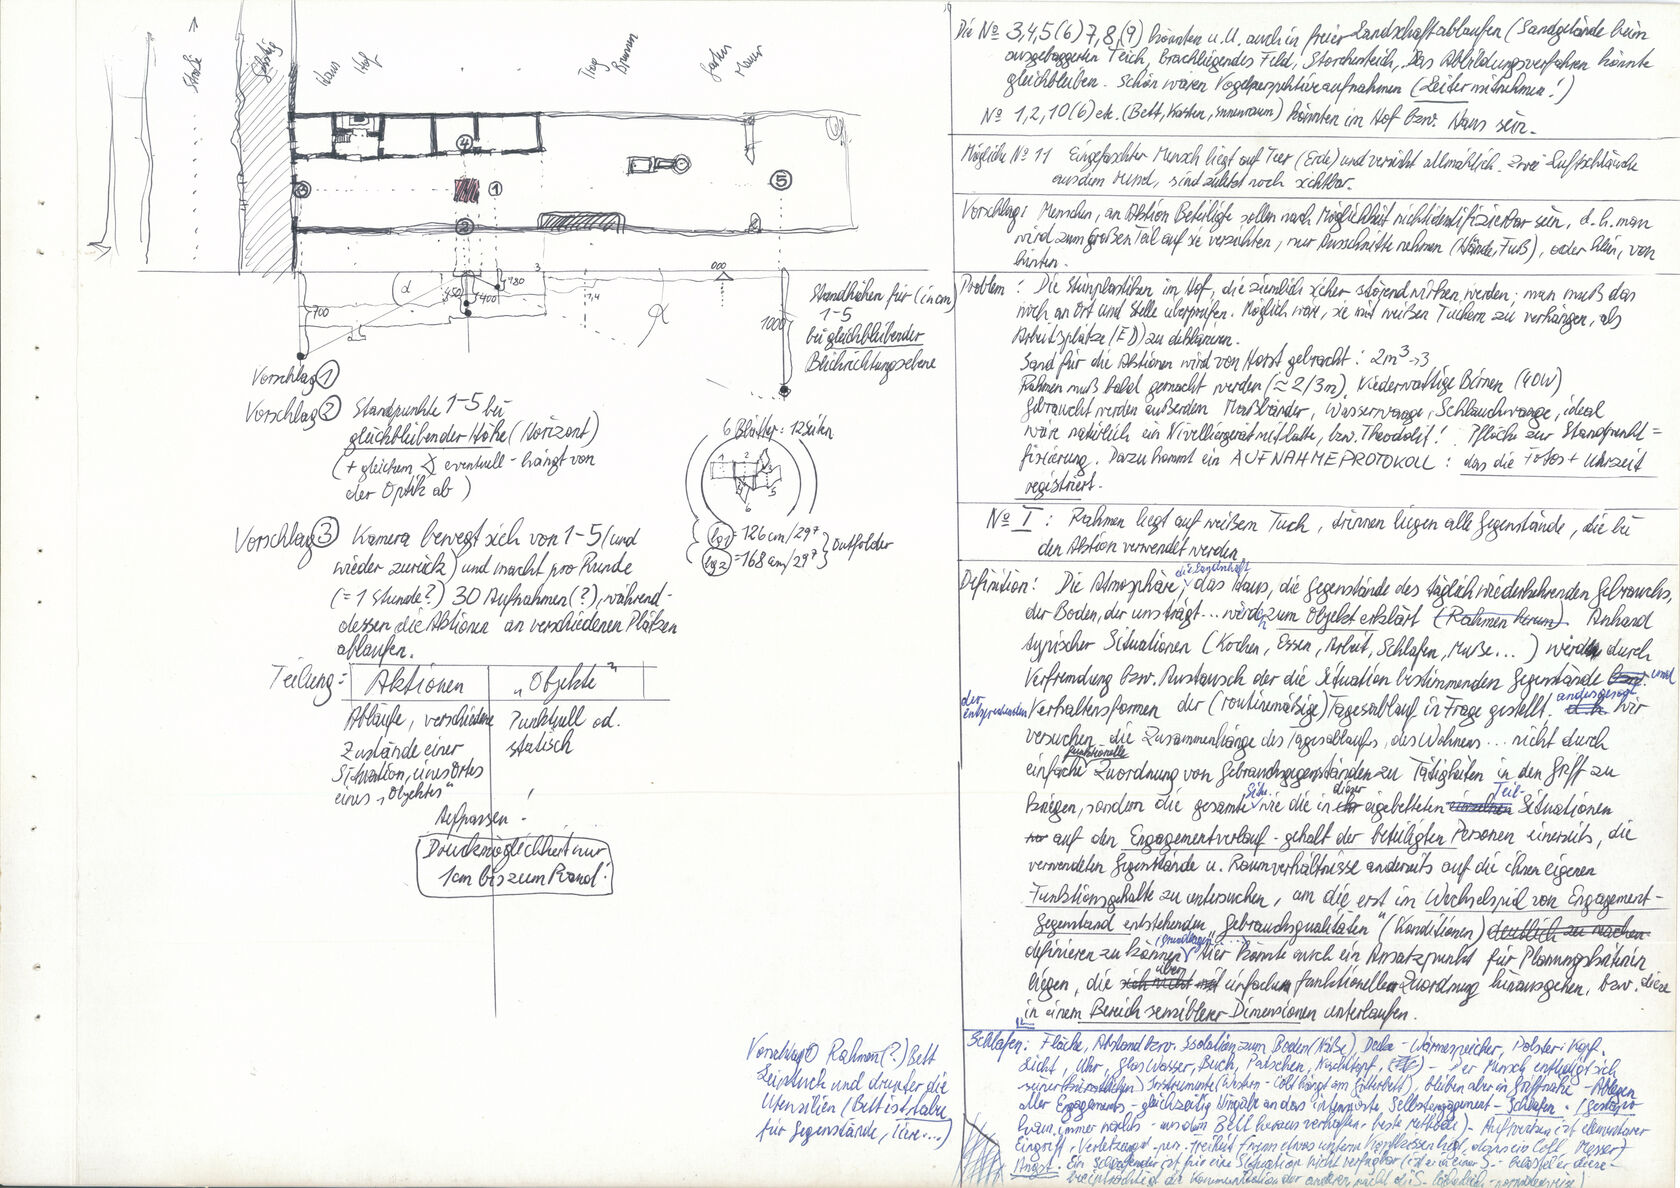 Straße →
Gehsteig
Haus
Hof
Trog
Brunnen
Garten
Mauer
4
3
1
5
2
α
700
450
400
780
3
000
1000
α
Standhöhen für (in cm)
1-5
bei gleichbleibender
Blickrichtungsebene
Vorschlag 1
Vorschlag 2 Standpunkte 1-5 bei
gleichbleibender Höhe (Horizont)
(+ gleichem eventuell - hängt von
der Optik ab)
6 Blätter = 12 Seiten
1 2 3
4 5
6
lg1 = 126 cm/29⁷
lg2 = 168 cm/29⁷
Outfolder
Vorschlag 3 Kamera bewegt sich von 1-5 (und
wieder zurück) und macht pro Runde
(= 1 Stunde?) 30 Aufnahmen (?), während-
dessen die Aktionen an verschiedenen Plätzen
ablaufen.
Teilung: Aktionen "Objekte"
Abläufe, verschiedene Punktuell od.
Zustände einer statisch
Situation, eines Ortes
eines "Objektes"
Aufpassen!
Druckmöglichkeit nur
1cm bis zum Rand!
Vorschlag Rahmen (?) Bett
Leintuch und drunter die
Utensilien (Bett ist Tabu
für Gegenstände, Tiere...)
Die Nº 3,4,5(6)7,8,(9) könnten u.U. auch in freier Landschaft ablaufen (Sandgelände beim
ausgebaggerten Teich, brachliegendes Feld, Storchenteich, Das Abbildungsverfahren könnte
gleichbleiben. Schön wären Vogelperspektiveaufnahmen (Leiter mitnehmen!)
Nº 1,2,10(6) etc. (Bett, Kasten, Innenraum) könnten in Hof bzw. Haus sein.
Mögliche Nº 11 Eingefaschter Mensch liegt auf Teer (Erde) und versinkt allmählich. Zwei Luftschläuche
aus dem Mund, sind zuletzt noch sichtbar.
Vorschlag: Menschen, an Aktion Beteiligte sollen nach Möglichkeit nicht identifizierbar sein, d.h. man
wird zum großen Teil auf sie verzichten, nur Ausschnitte nehmen (Hände, Fuß), oder klein, von
hinten.
Problem: Die Steinplastiken im Hof, die ziemlich sicher störend wirken werden; man muß das
noch an Ort und Stelle überprüfen. Möglich wäre, sie mit weißen Tüchern zu verhängen, als
Arbeitsplätze (FD) zu deklarieren.
Sand für die Aktionen wird von Horst gebracht: 2m³ → 3
Rahmen muß gemacht werden (≈ 2/3m). Niederwattige Birnen (40W)
Gebraucht werden außerdem Maßbänder, Wasserwaage, Schlauchwaage, ideal
wäre natürlich ein Nivelliergerät mit Latte, bzw. Theodolit! Pflöcke zur Standpunkt=
fixierung. Dazu kommt ein AUFNAHMEPROTOKOLL: das die Fotos + Uhrzeit
registriert.
Nº I: Rahmen liegt auf weißem Tuch, drinnen liegen alle Gegenstände, die bei
den Aktion verwendet werden.
Definition: Die Atmosphäre, die Landschaft das Haus, die Gegenstände des täglich wiederkehrenden Gebrauchs,
der Boden, der uns trägt... werden zum Objekt erklärt (Rahmen herum). Anhand
typischer Situationen (Kochen, Essen, Arbeit, Schlafen, Muße...) werden durch
Verfremdung bzw. Austausch der die Situation bestimmenden Gegenstände bzw. und
der entsprechenden Verhaltensformen der (routinemäßige) Tagesablauf in Frage gestellt. d.h. anders gesagt Wir
versuchen die Zusammenhänge des Tagesablaufs, des Wohnens... nicht durch
einfache funktionelle Zuordnung von Gebrauchsgegenständen zu Tätigkeiten in den Griff zu
kriegen, sondern die gesamte wie die in dieser eingebetteten einzelnen Teil- Situationen
auf den Engagementverlauf - gehalt der beteiligten Personen einerseits, die
verwendeten Gegenstände u. Raumverhältnisse anderseits auf die ihnen eigenen
Funktionsgehalte zu untersuchen, um die erst im Wechselspiel von Engagement-
Gegenstand entstehenden "Gebrauchsqualitäten" (Konditionen) deutlich zu machen
definieren zu können. Hier könnte auch ein Ansatzpunkt für Planungskriterien
liegen, die sich nicht mit über einfachen funktionellen Zuordnung hinausgehen, bzw. diese
in einem Bereich sensiblerer Dimensionen unterlaufen.
Schlafen: Fläche, Abstand bzw. Isolation zum Boden (Nässe) Decke - Wärmespeicher, Polster: Kopf.
Licht, Uhr, Glas Wasser, Buch, Patschen, Nachttopf, - Der Mensch entledigt sich
seiner Instrumente (Western - Colt hängt am Gitterbett), bleiben aber in Griffnähe - Ablegen
aller Engagements - gleichzeitig Hingabe an das intensivste, Selbstengagement - Schlafen. (Gestapo
kam immer nachts - aus dem Bett heraus verhaften - beste Methode) - Aufwecken ist elementarer
Eingriff, Verletzung d. pers. Freiheit
Angst. Ein Schlafender ist für eine Situation nicht verfügbar